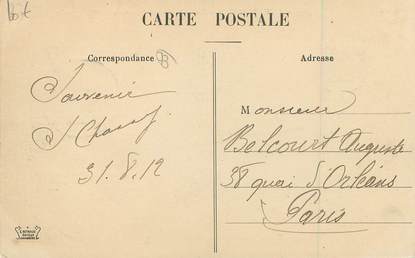 CARTE POSTALE
Correspondance
Adresse
Souvenir
31.8.12
Monsieur
Belcourt Auguste
38 quai d'Orléans
Paris